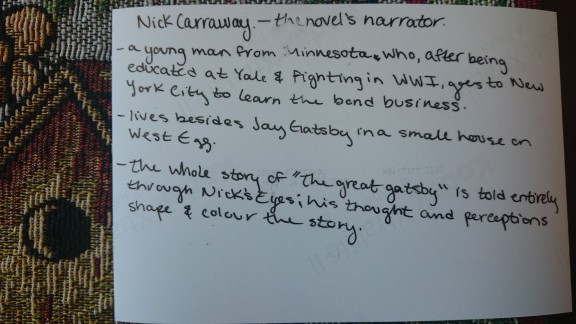 Nick Carraway. - the novel's narrator.
- a young man from Minnesota, who, after being
educated at Yale & fighting in WWI, goes to New
York City to learn the bond business.
- lives besides Jay Gatsby in a small house on
West Egg.
- the whole story of "the great gatsby" is told entirely
through Nick's Eyes; his thought and perceptions
shape & colour the story.